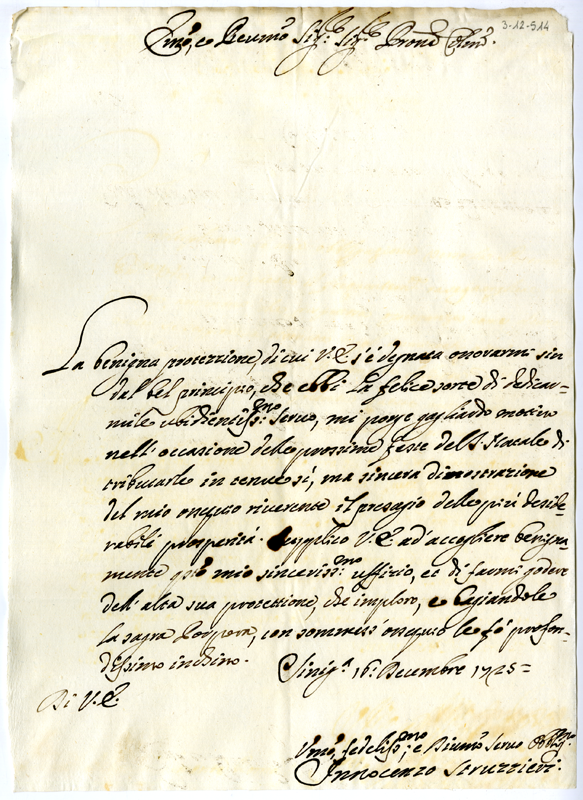 3-12-514
Emo, e Reumo Sigre: Sigre Prone Colmo.
La benigna protezzione, di cui V.E. s'è degnata onorarmi sin
dal bel principio, che ebbi la felice sorte di dedicar=
mile ubidientissmo: Servo, mi porge gagliardo motivo
nell'occasione delle prossime feste del S. Natale di
tributarle in tenue sì, ma sincera dimostrazione
del mio ossequio riverente il presagio delle più deside=
rabili prosperità. Supplico V.E. ad'accogliere benigna=
mente qsto mio sincerissmo: uffizio, et di farmi godere
dell'alta sua protettione, che imploro, e bagiandole
la sagra Porpora, con sommess'ossequio le fò profon=
dissimo inchino. Sinigª 16: Decembre 1725=
Di V.E.
Umo, fedelissmo; e Divmo Servo Obblmo
Innocenzo Struzzieri.